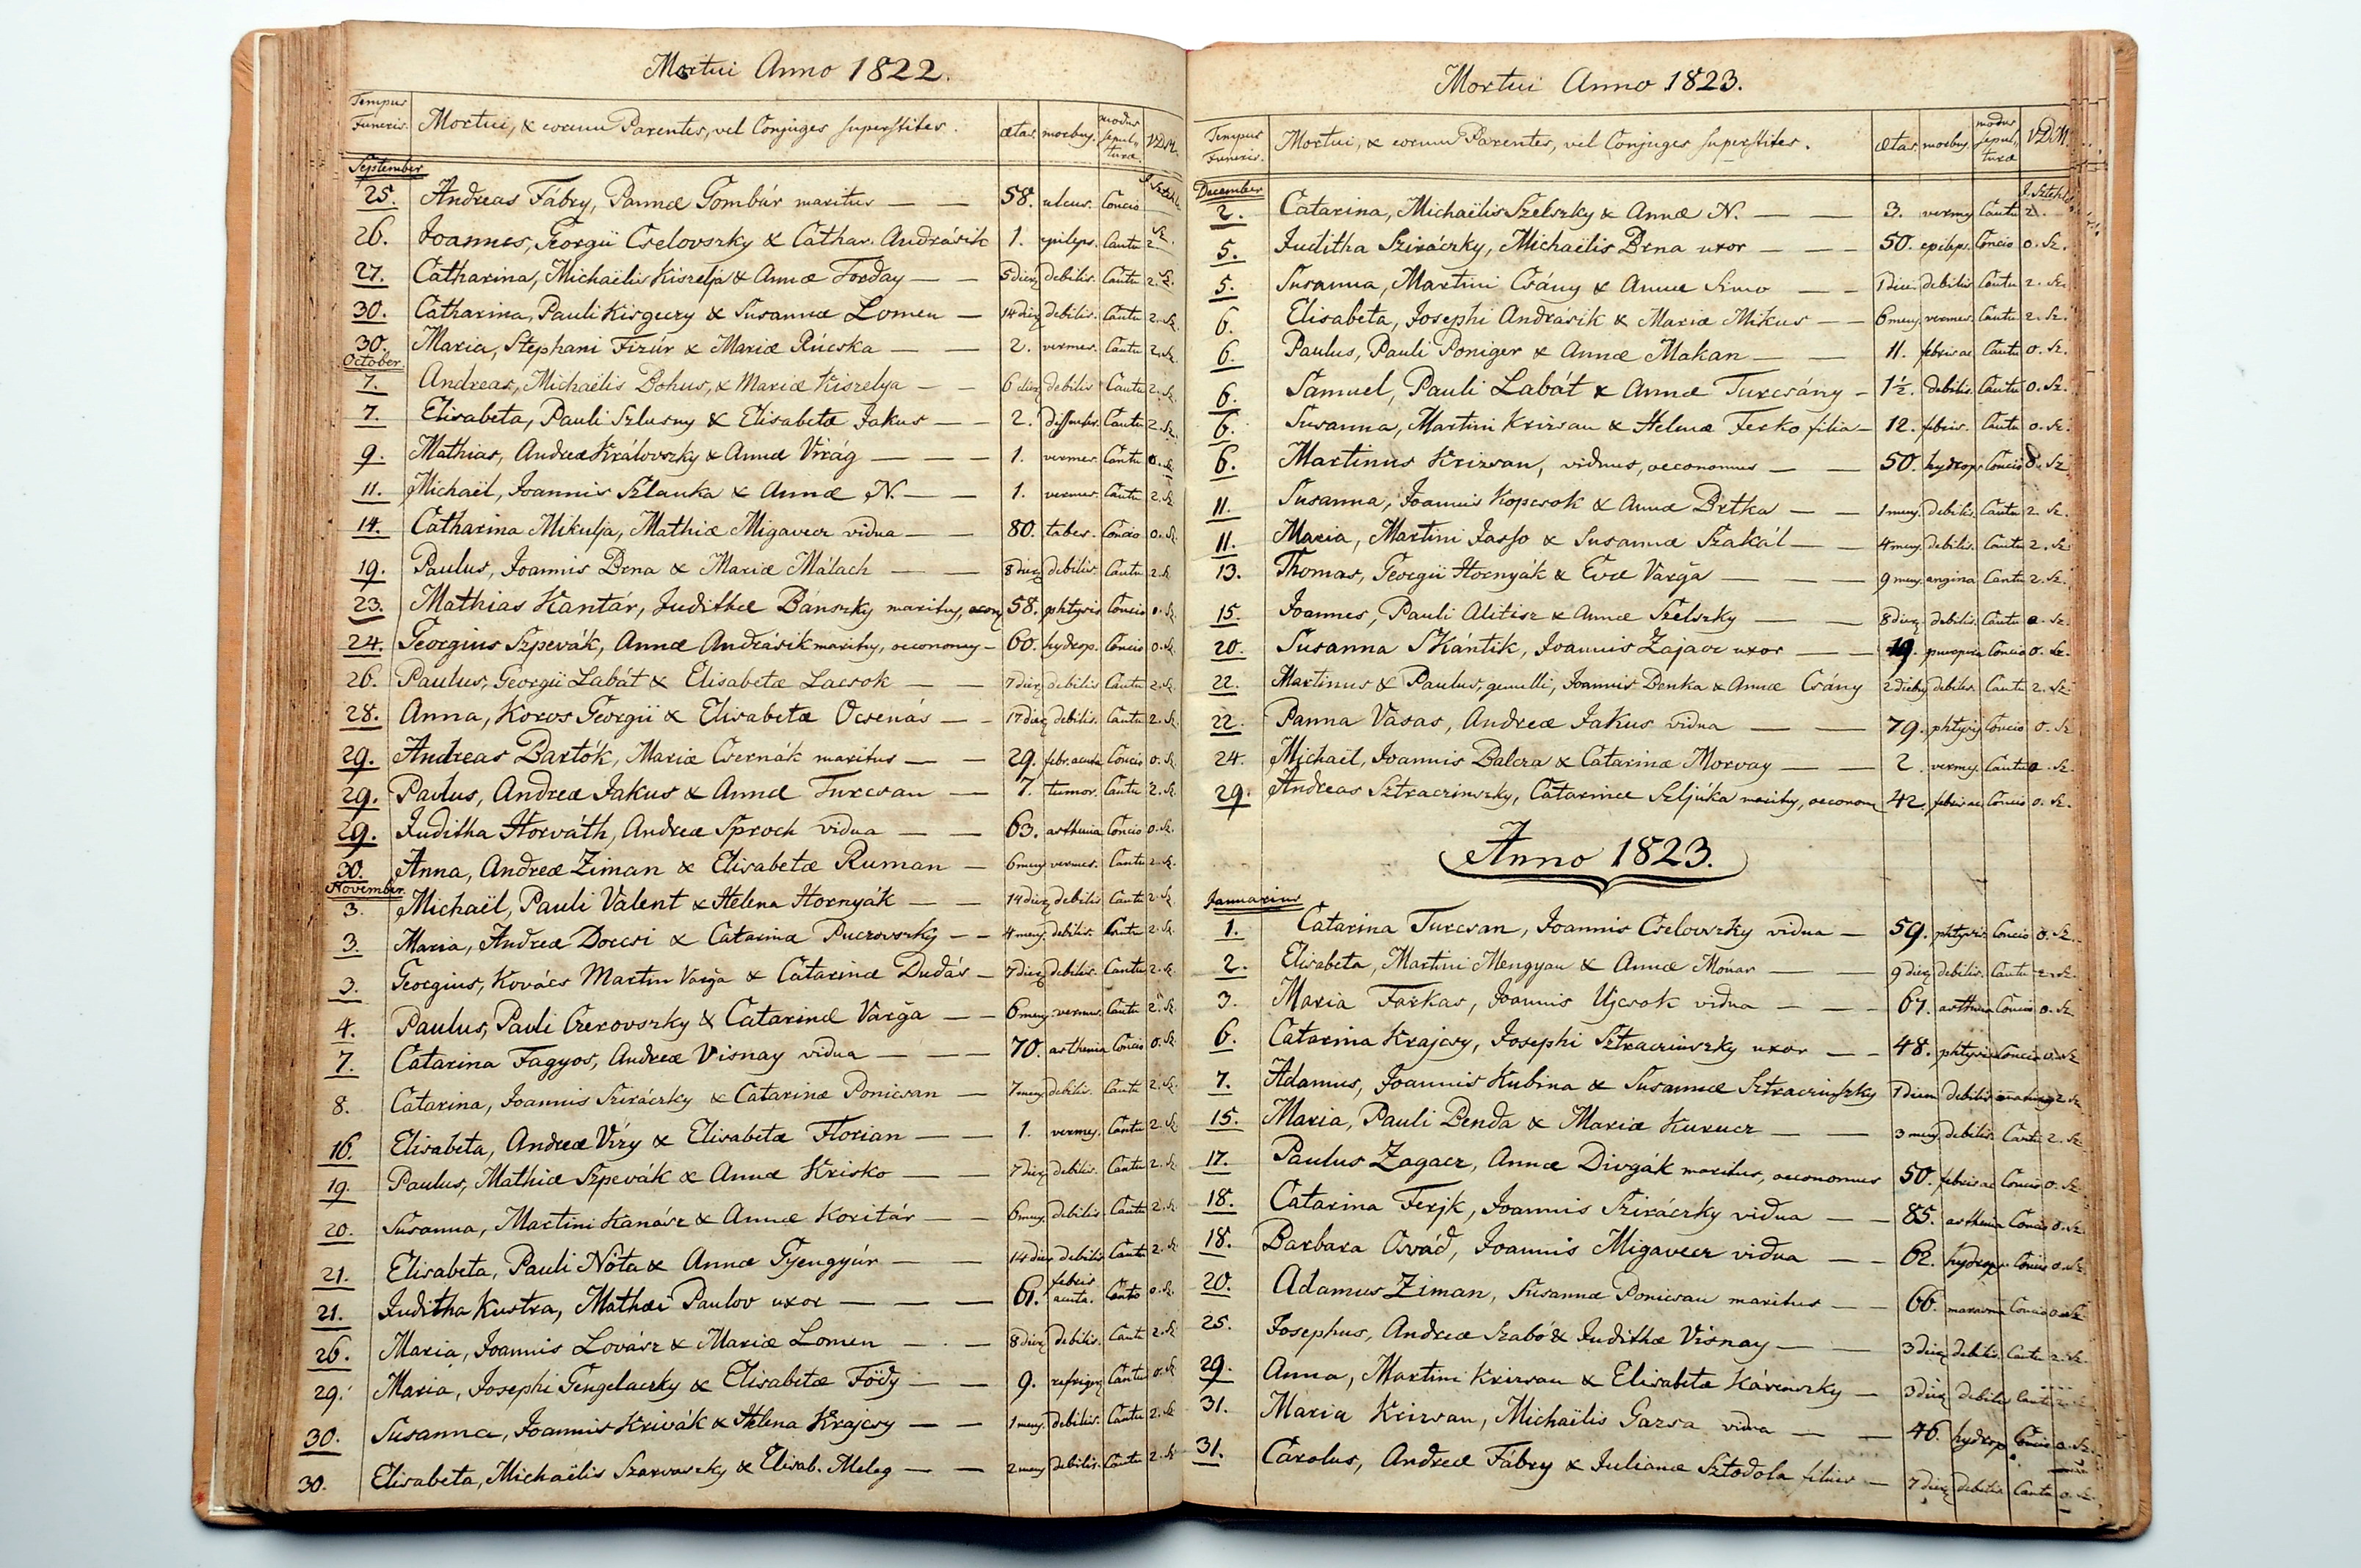 Mortui Anno 1822.
Tempus Funeris. Mortui, & eorum Parentes, vel Conjuges superstites. ætas. morbus. modus sepul„turæ V.D.M.
September
25. Andreas Fábry, Pannæ Gombár maritus — — 58. ulcus. Concio
26. Joannes, Georgii Cselovszky & Cathar. Andrásik 1. epileps. Cantu 2. Sz.
27. Catharina, Michaëlis Kiszelja & Annæ Forday — — 5 dier. debilis. Cantu 2. Sz.
30. Catharina, Pauli Kisgeczy & Susannæ Lomen — 14 dier. debilis. Cantu 2. Sz.
30. Maria, Stephani Fizúr & Mariæ Rúcska — — 2. vermes. Cantu 2. Sz.
October
7. Andreas, Michaëlis Bohus, & Mariæ Kiszelya — — 6 dier. debilis Cantu 2. Sz.
7. Elisabeta, Pauli Szlusny & Elisabetæ Jakus — — 2. Cantu 2. Sz.
9. Mathias, Andreæ Královszky & Annæ Virág — — — 1. vermes. Cantu 0. Sz.
11. Michaël, Joannis Szlauka & Annæ N. — — 1. vermes. Cantu 2. Sz.
14. Catharina Mikulja, Mathiæ Migavecz vidua — — 80. tabes. Concio 0. Sz.
19. Paulus, Joannis Brna & Mariæ Málach — — 8 dier. debilis. Cantu 2. Sz.
23. Mathias Kantár, Judithæ Bánszky maritus, 58. phtysis Concio 0. Sz.
24. Georgius Szpevák, Annæ Andrásik maritus, oeconomus — 60. hydrop. Concio 0. Sz.
26. Paulus, Georgii Labát & Elisabetæ Lacsok — — 7 dier. debilis Cantu 2. Sz.
28. Anna, Koros Georgii & Elisabetæ Ocsenás — — 17 dier. debilis. Cantu 2. Sz.
29. Andreas Bartók, Mariæ Csernák maritus — — 29. febr. acuta Concio 0. Sz.
29. Paulus, Andreæ Jakus & Annæ Turcsan — 7. tumor. Cantu 2. Sz.
29. Juditha Horváth, Andreæ Sproch vidua — — 63. asthenia Concio 0. Sz.
30. Anna, Andreæ Ziman & Elisabetæ Ruman — 6 mens. vermes. Cantu 2. Sz.
November
3. Michaël, Pauli Valent & Helena Hornyák — — 14 dier. debilis Cantu 2. Sz.
3. Maria, Andreæ Doccsi & Catarinæ Puczovszky — — 4 mens. debilis. Cantu 2. Sz.
3. Georgius, Kovács Martin Varga & Catarinæ Dudás — 7 dier. debilis. Cantu 2. Sz.
4. Paulus, Pauli Czerovszky & Catarinæ Varga — — 6 mens. vermes. Cantu 2. Sz.
7. Catarina Fagyos, Andreæ Visnay vidua — — — 70. asthenia Concio 0. Sz.
8. Catarina, Joannis Sziráczky & Catarinæ Ponicsan — 7 mens. debilis. Cantu 2. Sz.
16. Elisabeta, Andreæ Vizy & Elisabetæ Florian — — 1. vermes. Cantu 2. Sz.
19. Paulus, Mathiæ Szpevák & Annæ Krisko — — 7 dier. debilis. Cantu 2. Sz.
20. Susanna, Martini Kanász & Annæ Koritár — — 6 mens. debilis. Cantu 2. Sz.
21. Elisabeta, Pauli Nóta & Annæ Gyengyúr — — 14 dier. debilis Cantu 2. Sz.
21. Juditha Kustra, Mathæi Paulov uxor — — — 61. febris acuta. 0. Sz.
26. Maria, Joannis Lovász & Mariæ Lomen — — 8 dier. debilis. Cantu 2. Sz.
29. Maria, Josephi Gengelaczky & Elisabetæ Födy — — 9. Cantu 0. Sz.
30. Susanna, Joannis Krivák & Helena Krajcsy — — 1 mens. debilis. Cantu 2. Sz.
30. Elisabeta, Michaëlis Szarvaszky & Elisab. Meleg — — 2 mens. debilis. Cantu 2. Sz.
Mortui Anno 1823.
Tempus Funeris. Mortui, & eorum Parentes, vel Conjuges superstites. ætas. morbus. modus sepul„turæ V.D.M.
December
2. Catarina, Michaëlis Szelszky & Annæ N. — — 3. vermes Cantu 2.
5. Juditha Sziráczky, Michaëlis Brna uxor — — 50. epileps. Concio 0. Sz.
5. Susanna, Martini Csány & Annæ Simo — — 1 diei debilis Cantu 2. Sz.
6. Elisabeta, Josephi Andrásik & Mariæ Mikus — — 6 mens. vermes. Cantu 2. Sz.
6. Paulus, Pauli Poniger & Annæ Makan — — 11. febris ac. Cantu 0. Sz.
6. Samuel, Pauli Labát & Annæ Turcsány — 1½. debilis. Cantu 0. Sz.
6. Susanna, Martini Krizsan & Helenæ Ferko filia — 12. febris. Cantu 0. Sz.
6. Martinus Krizsan, viduus, oeconomus — — 50. hydrops Concio 0. Sz.
11. Susanna, Joannis Kopcsok & Annæ Brtka — — 1 mens. debilis. Cantu 2. Sz.
11. Maria, Martini Jasso & Susannæ Szakál — — 4 mens. debilis. Cantu 2. Sz.
13. Thomas, Georgii Hornyák & Evæ Varga — — — 9 mens. angina Cantu 2. Sz.
15. Joannes, Pauli Alitisz & Annæ Szelszky — — 8 dier. debilis. Cantu Sz.
20. Susanna Skántik, Joannis Zajacz uxor — — 19. Concio 0. Sz.
22. Martinus & Paulus, gemelli, Joannis Benka & Annæ Csány 2 diebus debiles. Cantu 2. Sz.
22. Panna Vasas, Andreæ Jakus vidua — — 79. phtysis Concio 0. Sz.
24. Michaël, Joannis Balcza & Catarinæ Morvay — — 2. vermes. Cantu Sz.
29. Andreas Sztraczinszky, Catarinæ Szljúka maritus, oeconom. 42. febris ac. Concio 0. Sz.
Anno 1823.
Januarius
1. Catarina Turcsan, Joannis Cselovszky vidua — 59. phtysis Concio 0. Sz.
2. Elisabeta, Martini Mengyan & Annæ Mónar — — 9 dier. debilis. Cantu 2. Sz.
3. Maria Farkas, Joannis Ujcsok vidua — — — 67. asthenia Concio 0. Sz.
6. Catarina Krajcsy, Josephi Sztraczinszky uxor — — 48. phtysis Concio 0. Sz.
7. Adamus, Joannis Kubina & Susannæ Sztraczinszky 1 diei debilis 2. Sz.
15. Maria, Pauli Benda & Mariæ Kurucz — — 3 mens. debilis. Cantu 2. Sz.
17. Paulus Zagacz, Annæ Divgák maritus, oeconomus 50. febris ac Concio 0. Sz.
18. Catarina Ferjk, Joannis Sziráczky vidua — — 85. asthenia Concio 0. Sz.
18. Barbara Osvád, Joannis Migavecz vidua — — 62. hydrops Concio 0. Sz.
20. Adamus Ziman, Susannæ Ponicsan maritus — — 66. Concio 0. Sz.
25. Josephus, Andreæ Szabó & Judithæ Visnay — — 3 dier. debilis. Cantu 2. Sz.
29. Anna, Martini Krizsan & Elisabetæ Kávenszky — 3 dier. debilis Cantu
31. Maria Krizsan, Michaëlis Garsa vidua — — 46. hydrop. Concio 0. Sz.
31. Carolus, Andreæ Fábry & Julianæ Sztodola filius — 7 dier. debilis Cantu 0. Sz.